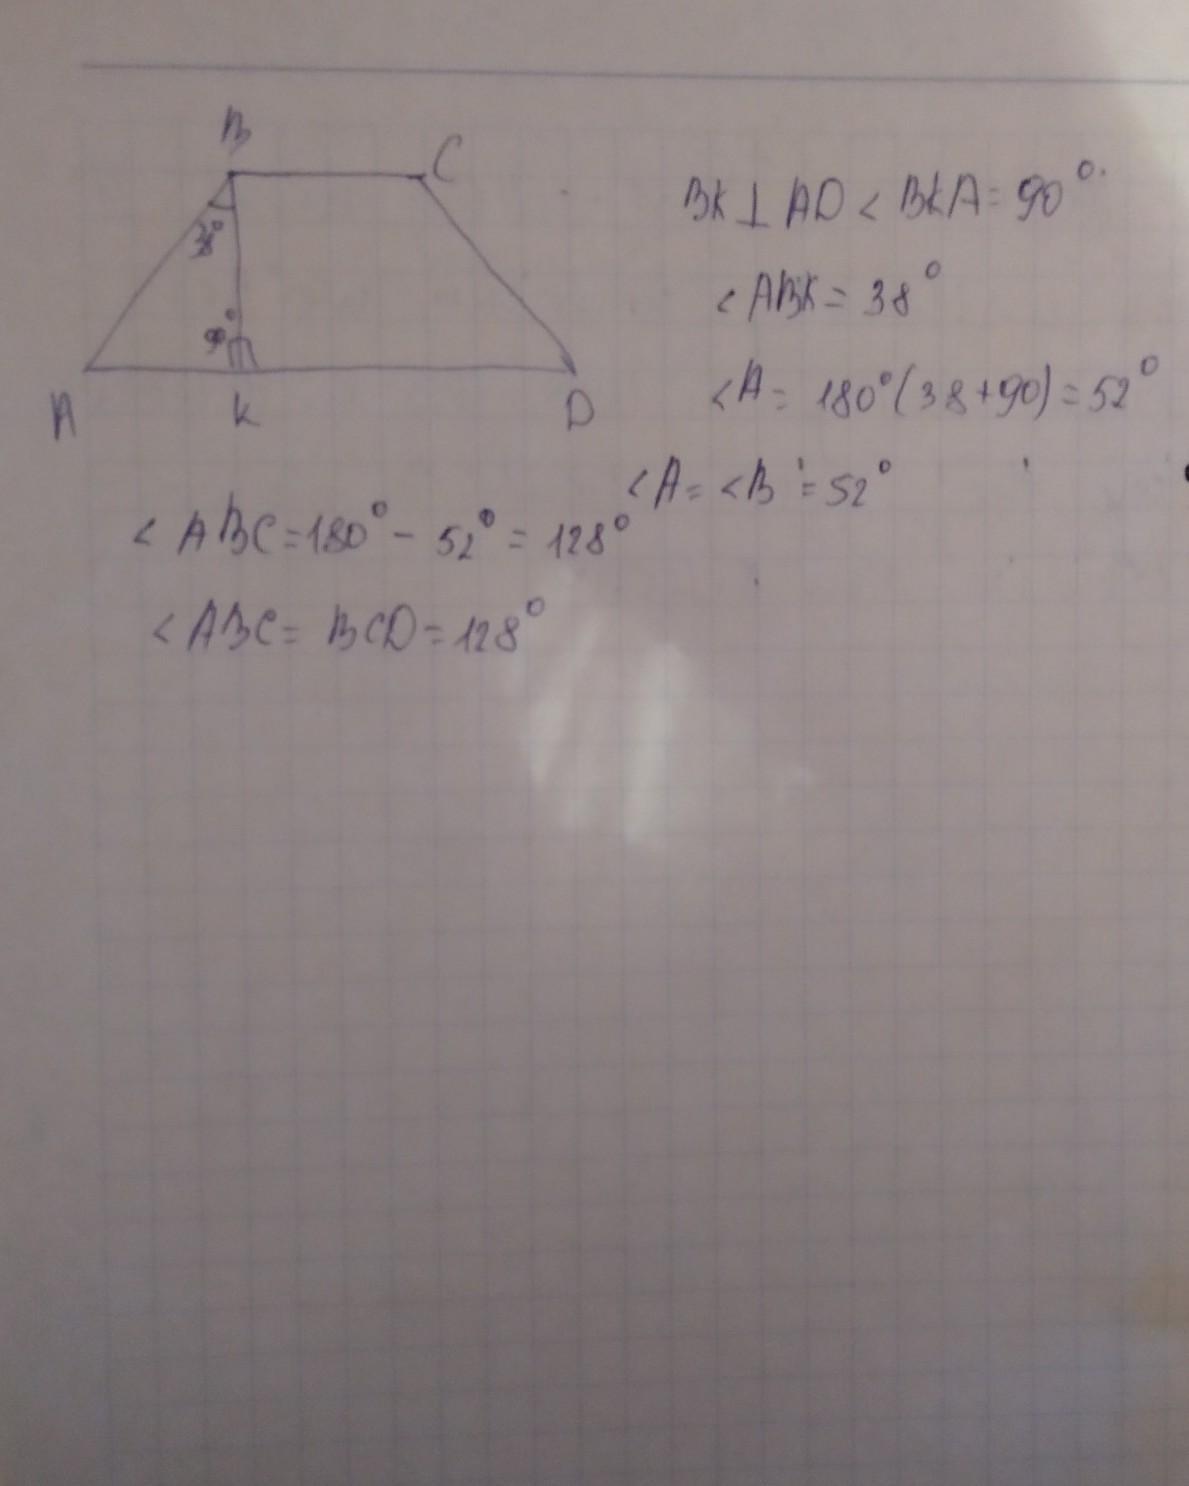 B
C
38°
90°
A
K
D
BK⊥AD < BKA = 90°.
< ABK = 38°
< A = 180°(38+90) = 52°
< A = < B = 52°
< ABC = 180° - 52° = 128°
< ABC = BCD = 128°